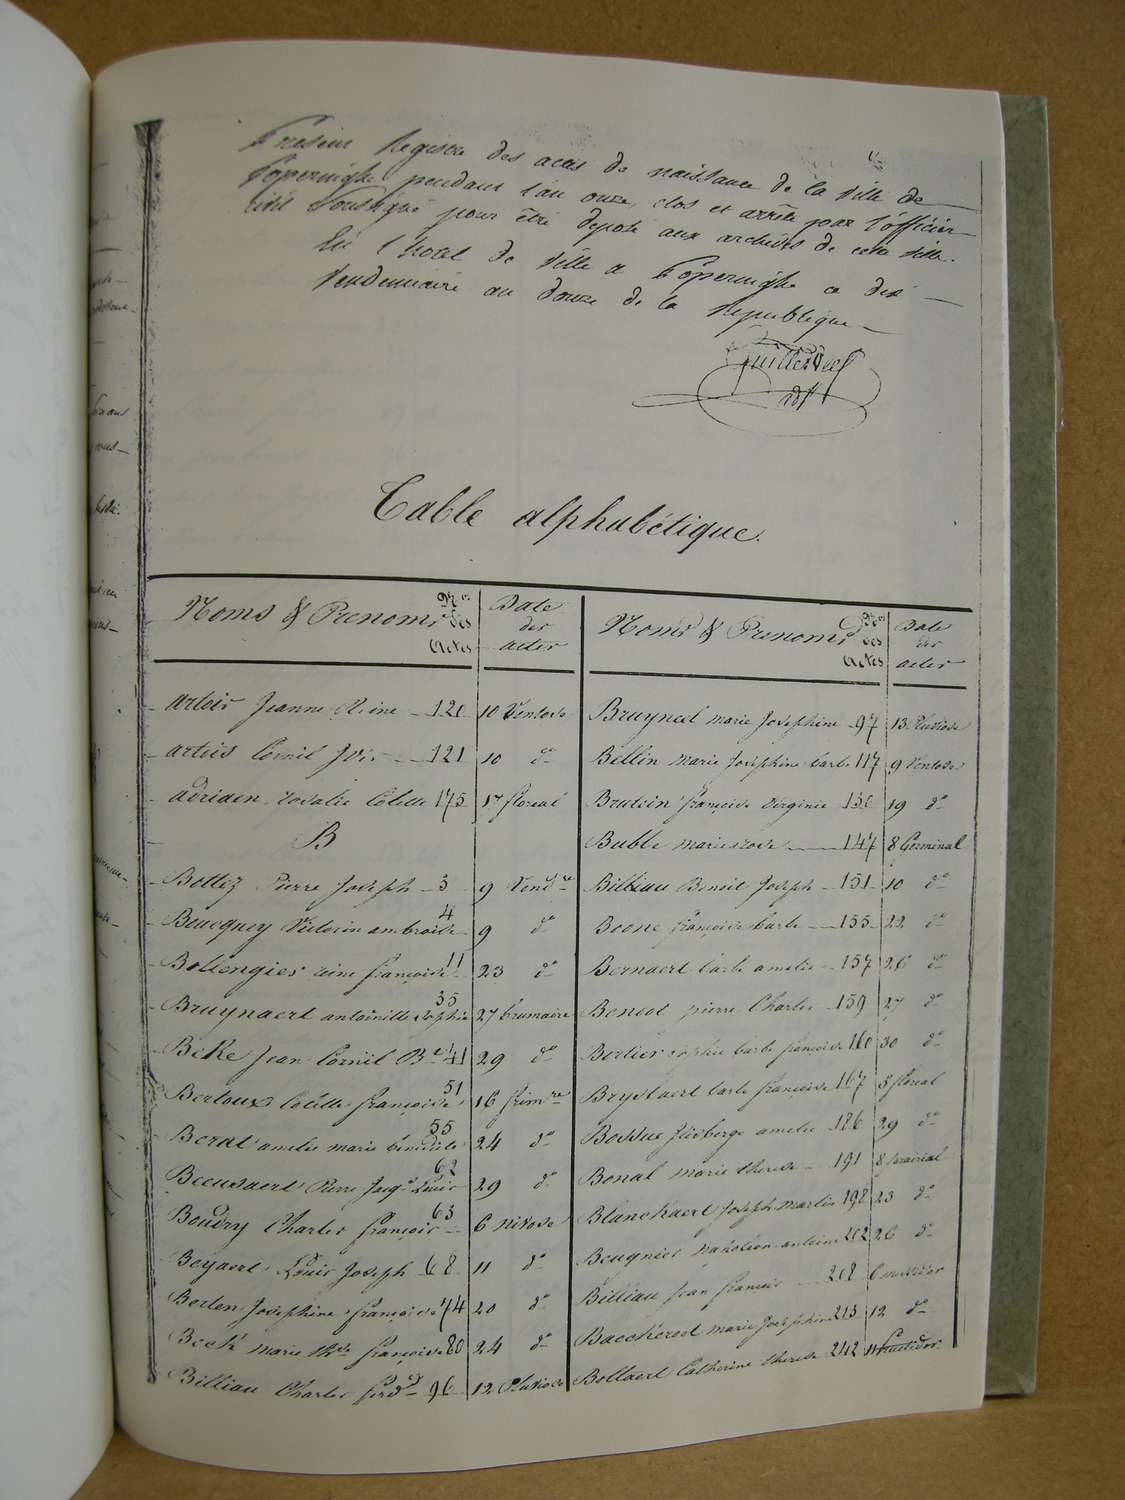 Présent Registre des actes de naissance de la Ville de
Poperinghe pendant l'an onze, clos et arrêté par l'officier
civil soussigné pour être déposé aux archives de cette Ville.
En l'hotel de Ville a Poperinghe ce dix
Vendemiaire an douze de la République
Table alphabétique.
Noms & Prenoms
Nos. des Actes
Date des actes
Noms & Prenoms
Nos. des Actes
Date des actes
artois Jeanne Reine 120 10 Ventose
artois Cornil 121 10 do
adriaen rosalie Colette 175 17 floreal
B
Bottez Pierre Joseph 3 9 Vendre
Beucquey Victorin ambroise 4 9 do
Bollengier reine françoise 11 23 do
Bruynaert antoinette Sophie 35 27 brumaire
Beke Jean Cornil Bte 41 29 do
Bertoux Colette françoise 51 16 frimre
Berat amelie marie benedicte 55 24 do
Beeusaert Pierre Jacqs Louis 62 29 do
Boudry Charles françois 63 6 nivose
Beyaert Louis Joseph 68 11 do
Berten Josephine françoise 74 20 do
Beck marie thse françoise 80 24 do
Billiau Charles ferdd 96 12 Pluviose
Bruyneel marie Josephine 97 13 Pluviose
Bellin marie Josephine barbe 117 9 Ventose
Brutsin françoise Virginie 130 19 do
Buble marie rose 147 8 Germinal
Billiau Benoit Joseph 151 10 do
Boone françoise barbe 155 22 do
Bernaert barbe amelie 157 26 do
pierre Charles 159 27 do
Bertier sophie barbe françoise 160 30 do
Brystaert barbe françoise 167 5 floreal
Bossue amelie 186 29 do
Bonal marie therese 191 8 prairial
Blanckaert Joseph martin 198 23 do
Beugniet napoléon antoine 202 26 do
Billiau Jean françois 208 6 messidor
marie Josephine 213 12 do
Bollaert Catherine therese 242 11 fructidor